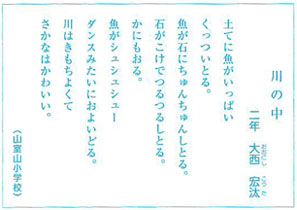 川の中
二年 大西 宏汰
おおにし こうた
土てに魚がいっぱい
くっついとる。
魚が石にちゅんちゅんしとる。
石がこけでつるつるしとる。
かにもおる。
魚がシュシュシュー
ダンスみたいにおよいどる。
川はきもちよくて
さかなはかわいい。
(山室山小学校)